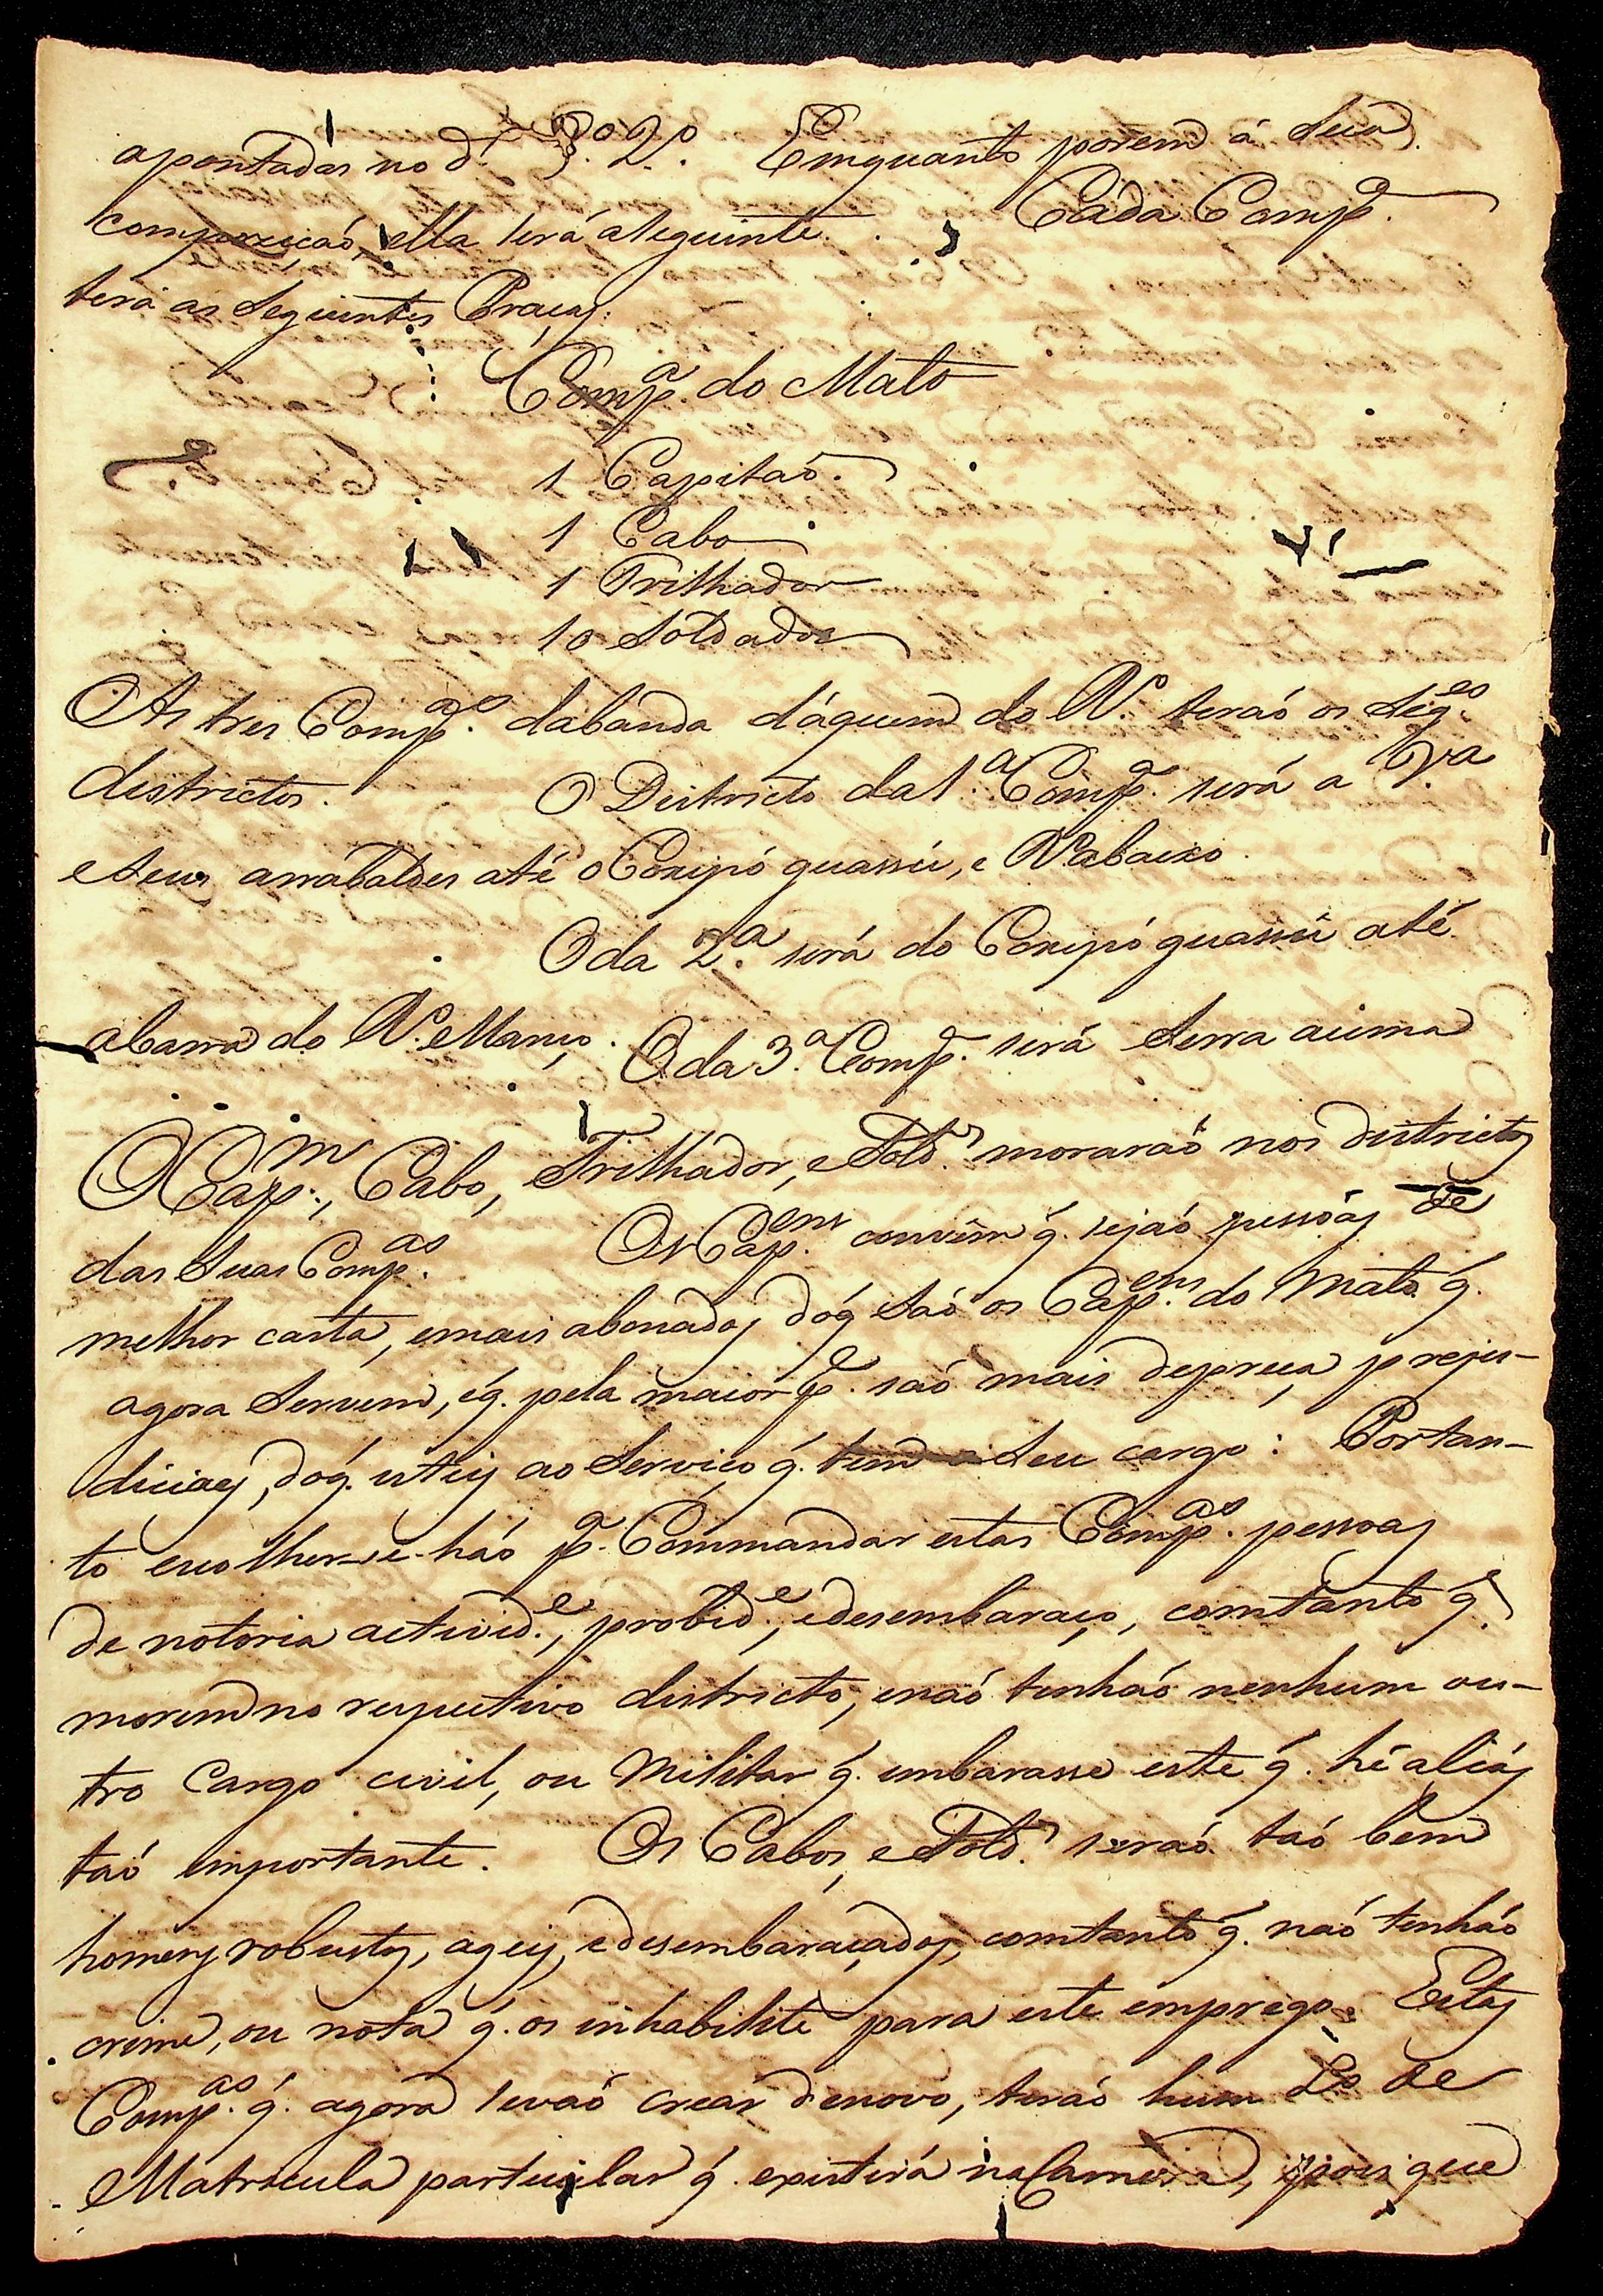 apontadas no d.º §.º 2.º Emquanto porem á sua
compozição, ella será aseguinte. Cada Comp.ª
terá as seguintes Praças:
Comp.ª do Mato
1 Capitaõ.
1 Cabo
1 Trilhador
10 Soldados
As tres Comp.as dabanda dáquem do R.º teraõ os seg.es
districtos. O Districto da 1.ª Comp.ª será a V.ª
eseus arrabaldes até o Coxipó guassú, e R.º abaixo.
O da 2.ª será do Coxipó guassú até
abarra do R.º Manso. O da 3.ª Comp.ª será Serra acima
O Cap.m, Cabo, Trilhador, e Sold.s moraraõ nos districtos
das suas Comp.as Os Cap.ens convêm q̃. sejaõ pessoas de
melhor casta, emais abonados dóq̃ saõ os Cap.ens do Mato q̃.
agora servem, eq̃. pela maior p.e saõ mais depreça preju-
diciaes, doq̃. uteis ao Serviço q̃. tem a seu cargo: Portan-
to escolher-se-háõ p.ª Commandar estas Comp.as pessoas
de notoria activid.e, probid.e, edesembaraço, comtanto q̃.
morem no respectivo districto, enaõ tenháõ nenhum ou-
tro Cargo civil, ou Militar q̃. embarasse este q̃. hé aliás
taõ importante. Os Cabos, e Sold.s seraõ taõ bem
homens robustos, ageis, edesembaraçados, comtanto q̃. naõ tenháõ
crime, ou nota q̃. os inhabilite para este emprego. Estas
Comp.as q̃. agora sevaõ crear denovo, teráõ hum L.º de
Matricula particular q̃. existirá naCamera, pois que